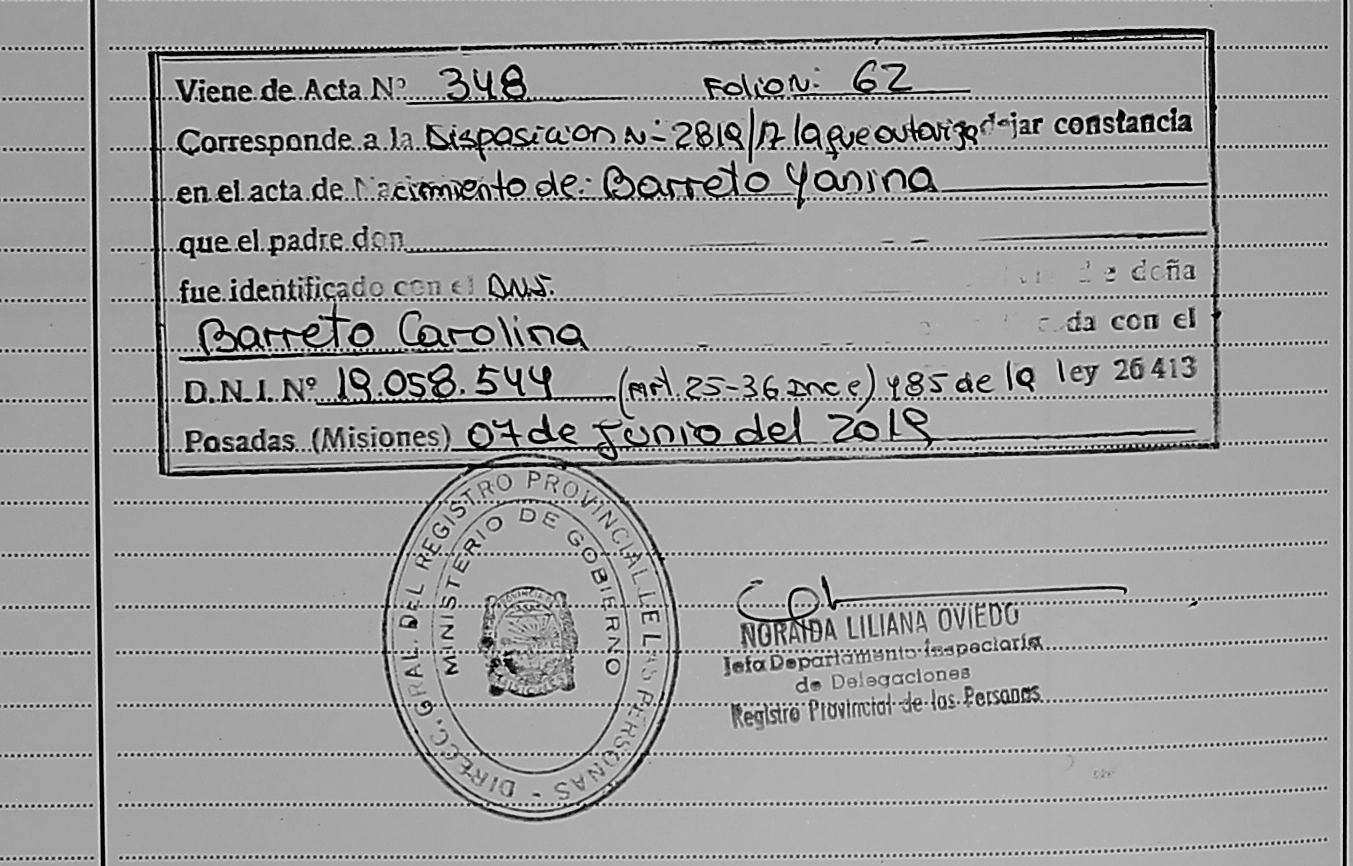 Viene de Acta Nº 348 Folio N: 62
Corresponde a la Disposicion N- 2819/17 la que autoriza dejar constancia
en el acta de Nacimiento de: Barreto Yanina
que el padre don
fue identificado con el DNI. de doña
Barreto Carolina da con el
D.N.I. Nº 19.058.544 (Art. 25-36 Inc e) y 85 de la ley 26413
Posadas (Misiones) 07 de Junio del 2019
DIRECC. GRAL. DEL REGISTRO PROVINCIAL DE LAS PERSONAS -
MINISTERIO DE GOBIERNO
NORAIDA LILIANA OVIEDO
Jefa Departamento Inspectoria
de Delegaciones
Registro Provincial de las Personas